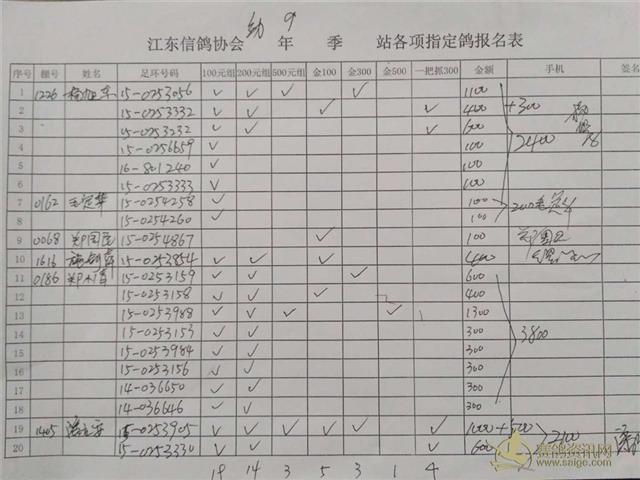 幼 9
江东信鸽协会 年 季 站各项指定鸽报名表
序号 棚号 姓名 足环号码 100元组 200元组 500元组 金100 金300 金500 一把抓300 金额 手机 签名
1 1226 15-0253056 ✓ ✓ ✓ ✓ 1100
2 15-0253332 ✓ ✓ ✓ ✓ 400 +300
3 15-0253232 ✓ ✓ ✓ 600
4 15-0256659 ✓ 100 2400
5 16-801240 ✓ 100
6 15-0253333 ✓ 100
7 0162 15-0254258 ✓ 100 200
8 15-0254260 ✓ 100
9 0068 郑国 15-0254867 ✓ 100 郑国
10 1616 15-0253854 ✓ ✓ ✓ ✓ 400
11 0186 郑 15-0253159 ✓ ✓ ✓ 600
12 15-0253158 ✓ ✓ ✓ 400
13 15-0253988 ✓ ✓ ✓ ✓ 1300
14 15-0253153 ✓ ✓ 300 3800
15 15-0253984 ✓ ✓ 300
16 15-0253156 ✓ ✓ 300
17 14-036650 ✓ ✓ 300
18 14-036646 ✓ ✓ 300
19 1405 15-0253905 ✓ ✓ ✓ ✓ ✓ ✓ 1000+500 2100
20 15-0253330 ✓ ✓ ✓ 600
19 14 3 5 3 1 4
赛鸽资讯网
www.saige.com